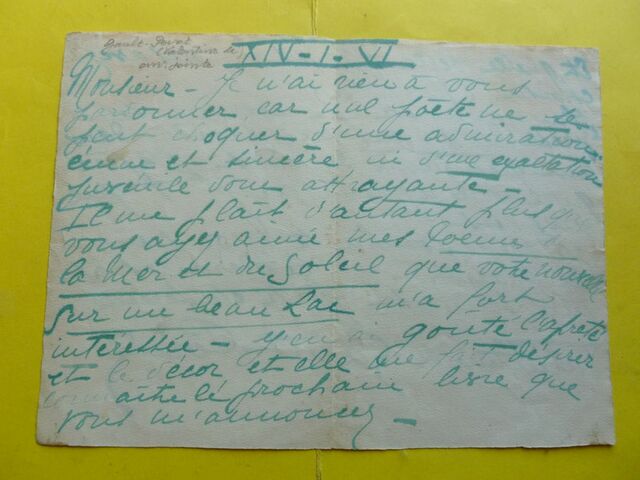 XIV-I-VI
Monsieur - Je n'ai rien à vous
pardonner car nul poète ne se
peut choquer d'une admiration
émue et sincère ni d'une exaltation
juvénile donc attrayante -
Il me plaît d'autant plus que
vous ayez aimé mes Poèmes
la Mer et du Soleil que votre nouvelle
Sur un beau Lac m'a fort
intéressée - j'en ai goûté l'apreté
et le décor et elle me fait désirer
connaître le prochain livre que
vous m'annoncez -